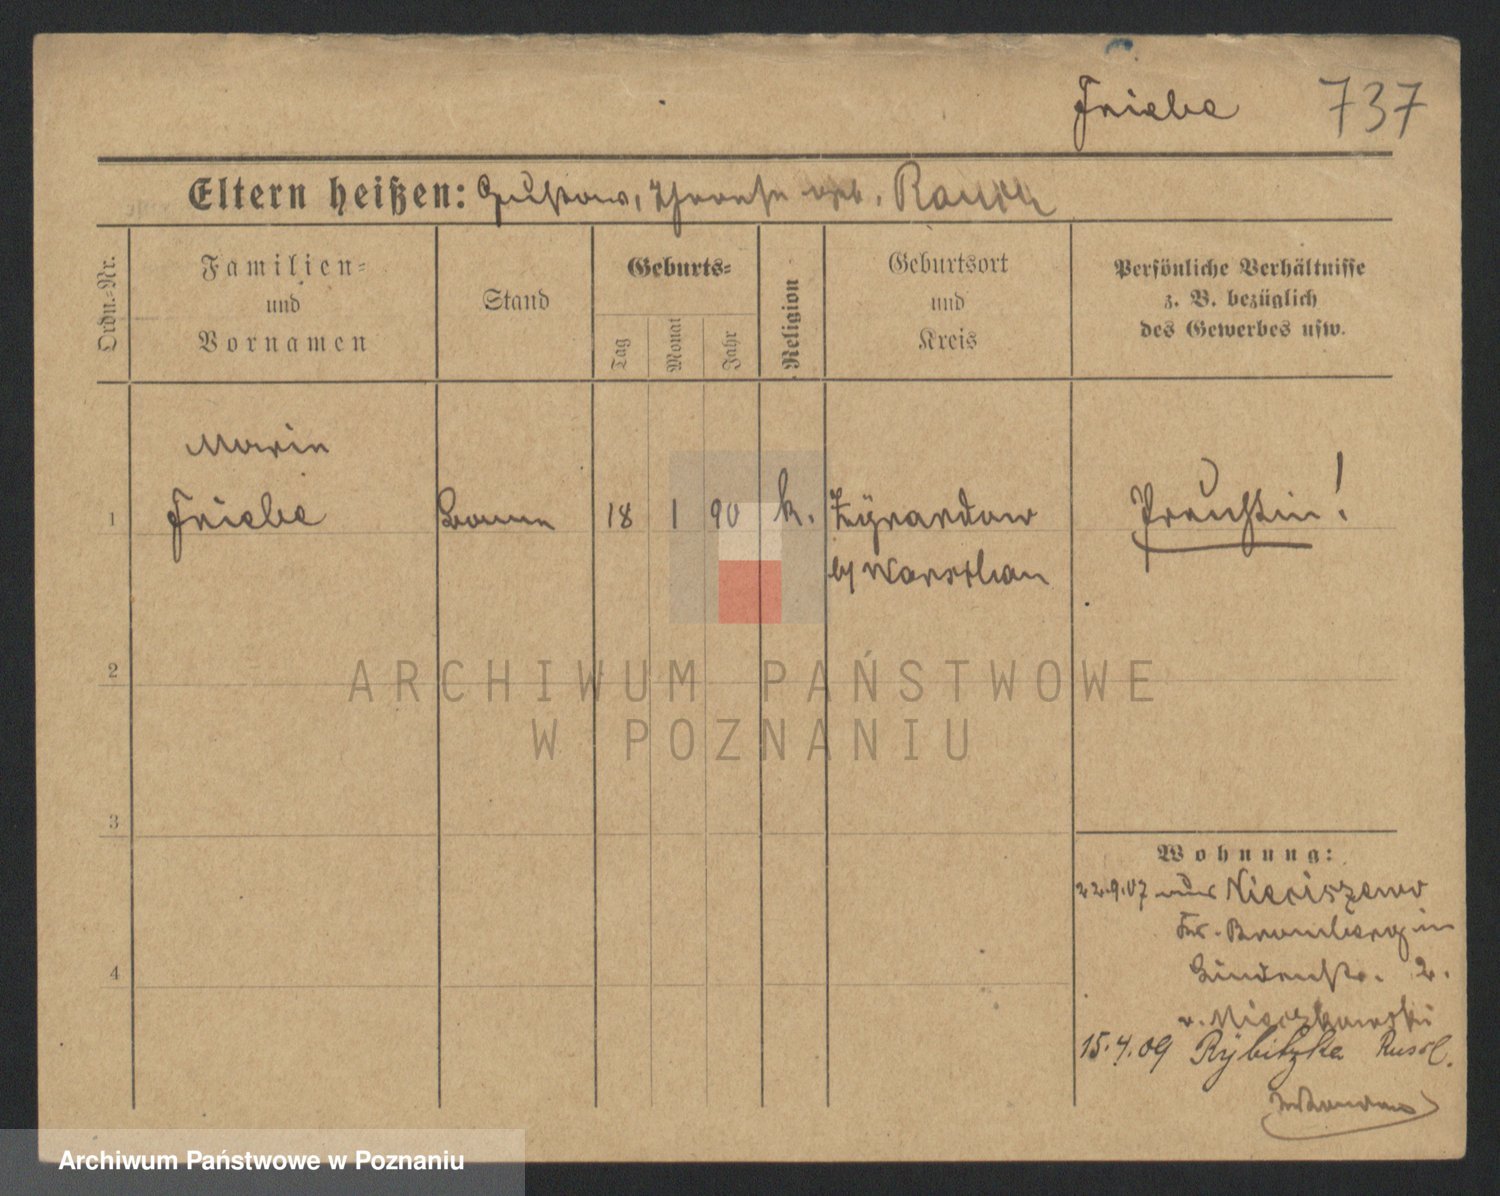 Friebe 737
Eltern heißen: Gustav, Therese geb. Rauch
Ordn.=Nr.
Familien=
und
Vornamen
Stand
Geburts=
Tag
Monat
Jahr
Religion
Geburtsort
und
Kreis
Persönliche Verhältnisse
z. B. bezüglich
des Gewerbes usw.
Marie
1 Friebe Bonne 18 1 90 k. Zÿrardow Preußin!
b/ Warschau
2
3
4
Wohnung:
22.9.07 aus Nieciszewo
Kr. Bromberg in
Lindenstr. 2.
v. Mieczkowski
15.4.09 Rybitzke Russl.
ARCHIWUM PAŃSTWOWE
W POZNANIU
Archiwum Państwowe w Poznaniu